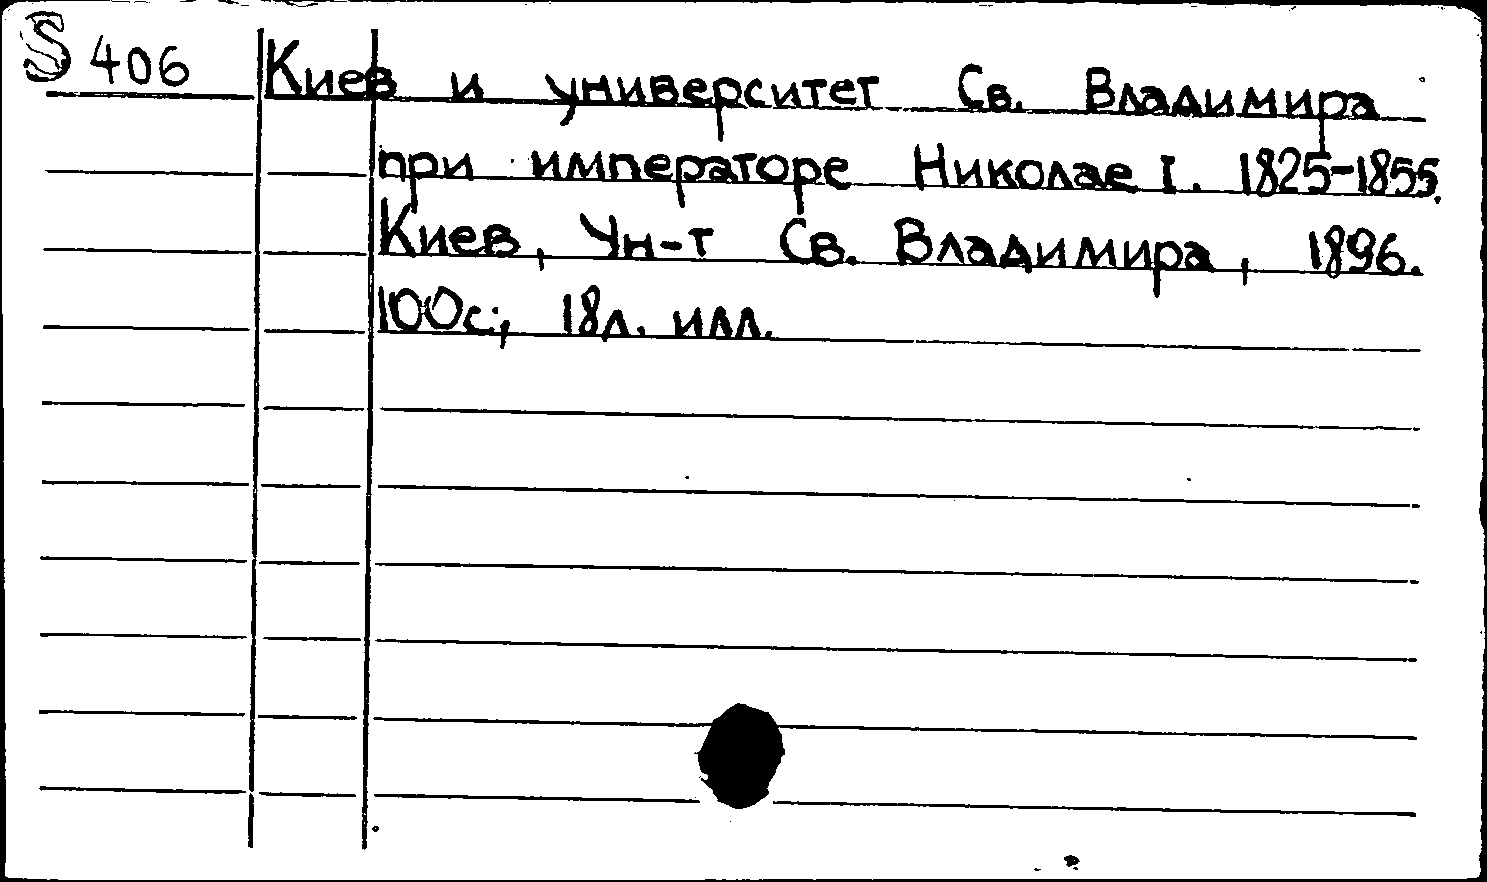 S 406 Киев и университет Св. Владимира
при императоре Николае I. 1825-1855.
Киев, Ун-т Св. Владимира, 1896.
100с; 18л. илл.